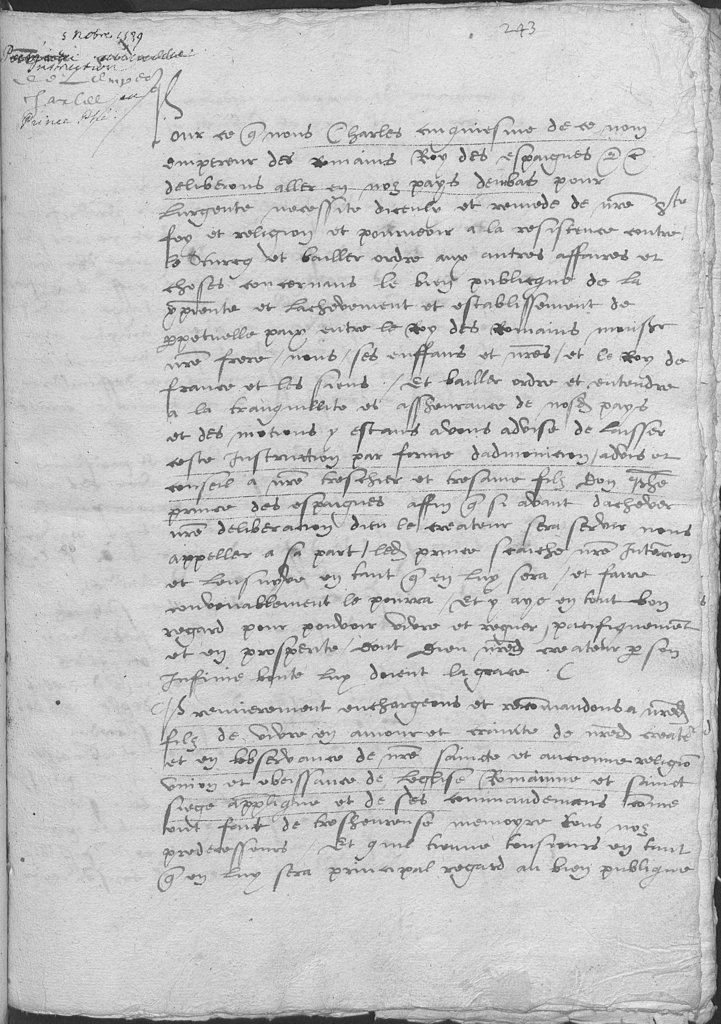 243
5 Nobre 1539
Instruction
de Lempeor
Charles
Prince Phe.
Pour ce q̃ nous Charles cinquiesme de ce nom
empereur des Romains Roy des espaignes
deliberons aller en noz pays dembas pour
lurgente necessite dicculx et remede de nr̃e s.te
foy et religion et pourveoir a la resistence contre
le turcq et bailler ordre aux autres affaires et
choses concernans le bien publicque de la
xp̃iente et lachevement et establissement de
p̱petuelle paix entre le Roy des Romains monsr
nr̃e frere / nous / ses enffans et nr̃es / et le Roy de
france et les siens . / Et bailler ordre et entendre
a la tranquillite et assheurance de nosd. pays
et des motions y estans avons advise de laisser
ceste Instruction par forme dadmonicion / advis et
conseil a nr̃e treschier et tresame filz Don Phẽ
prince des espaignes affin q̃ si avant dachever
nr̃e deliberacion dieu le createur sera servir nous
appeller a sa part / led. prince scaiche nr̃e Intẽcion
et lensuyvre en tant q̃ en luy sera / et faire
convenablement le pourra / Et y aye en tout bon
regard pour pouvoir vivre et regner pacifiquemẽt
et en prosperite / dont dieu nr̃ed. createur p̱ son
Infinie bonte luy doient la grace .
Premierement enchargeons et recõmandons a nr̃ed.
filz de vivre en amour et crainte de nr̃ed. creatr
et en lobservance de nr̃e saincte et ancienne religiõ
union et obeissance de leglise Romainne et sainct
siege applique et de ses commandemens cõme
ont fait de tresheureuse memoyre tous noz
predecesseurs / Et quil tienne tousiours en tant
q̃ en luy sera principal regard au bien publique